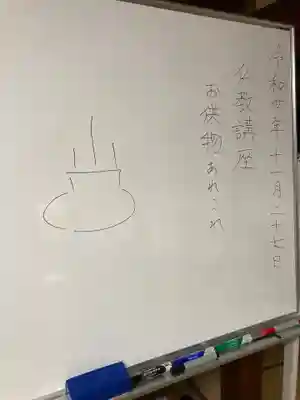 令和年十一月二十七日
仏教講座
お供物あれこれ